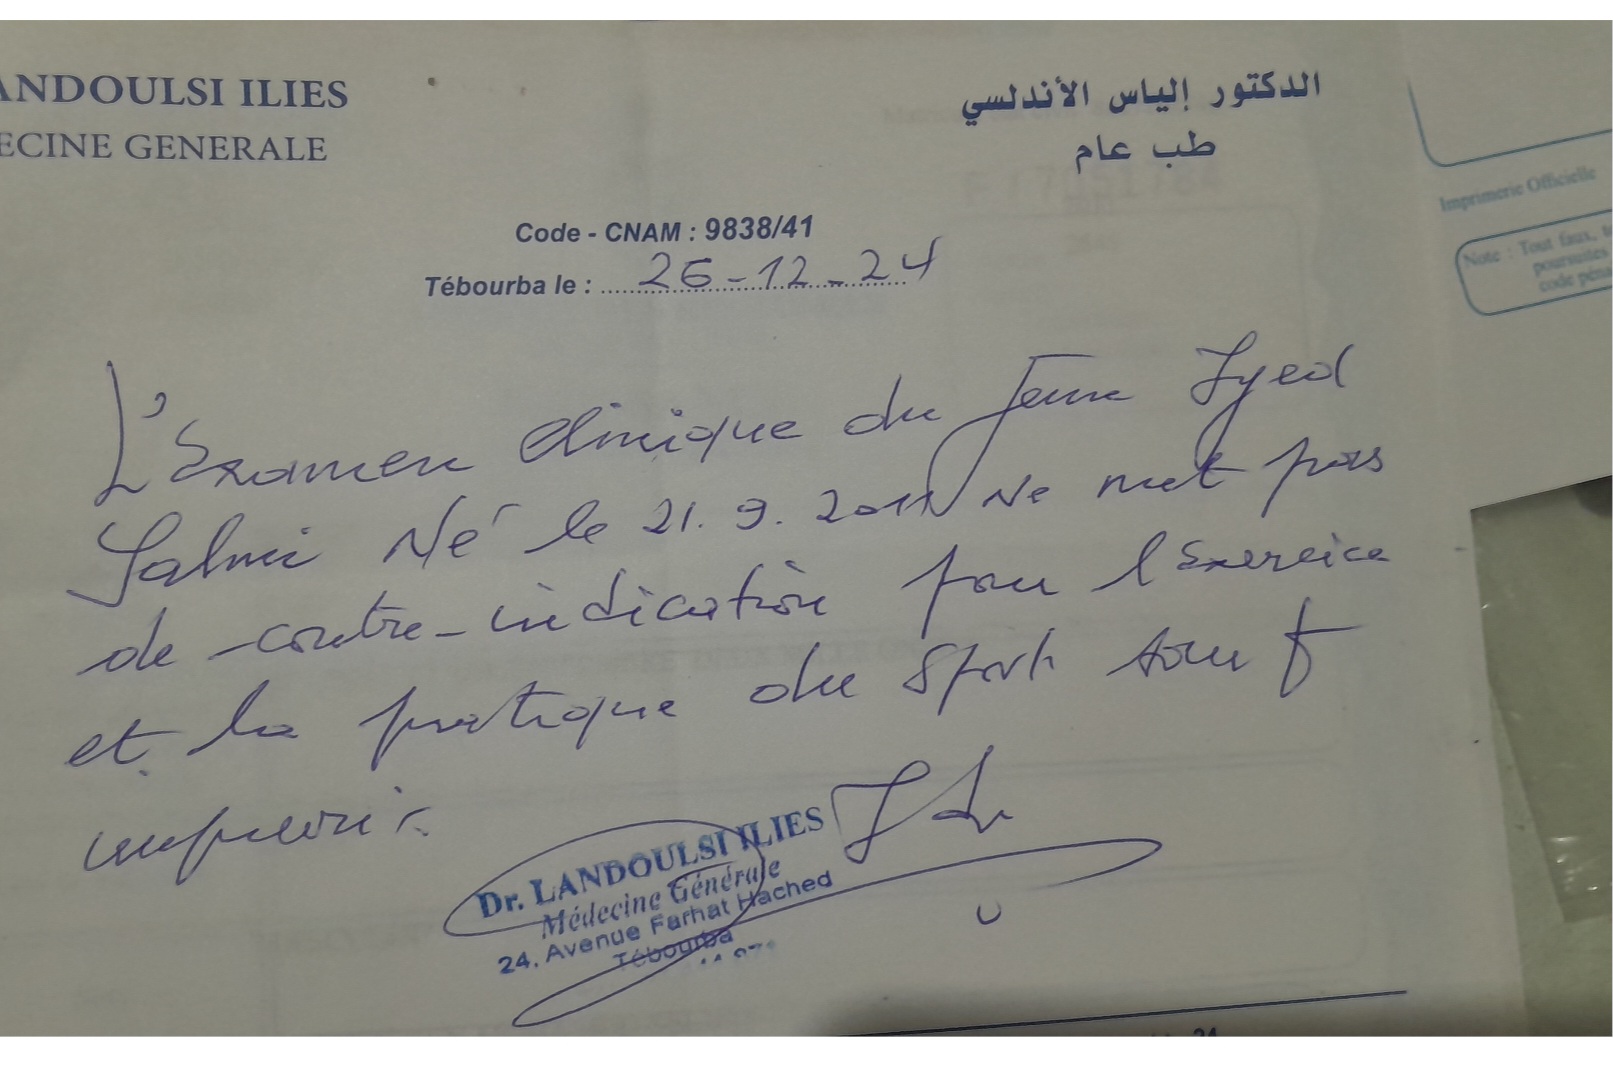 ANDOULSI ILIES
ECINE GENERALE
الدكتور إلياس الأندلسي
طب عام
Imprimerie Officielle
Note : Tout faux,
poursuites
code péna
Code - CNAM : 9838/41
Tébourba le : 26-12-24
L'Examen clinique du Jeune Iyed
Salmi Né le 21.9.2011 Ne met pas
de contre-indication pour l'Exercice
et la pratique du Sport sauf
imprévis.
Dr. LANDOULSI ILIES
Médecine Générale
24, Avenue Farhat Hached
Tébourba